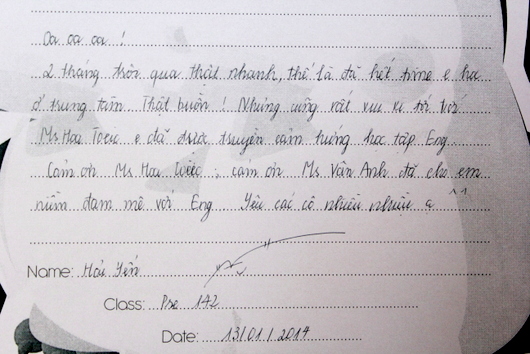 Oa oa oa !
2 tháng trời qua thật nhanh, thế là đã hết time e học
ở trung tâm. Thật buồn ! Nhưng cũng rất vui vì tới với
Ms Hoa Toeic e đã được truyền cảm hứng học tập Eng
Cảm ơn Ms Hoa Toeic, cảm ơn Ms Vân Anh đã cho em
niềm đam mê với Eng Yêu các cô nhiều nhiều ạ ^^
Name: Hải Yến
Class: Pre 142
Date: 13/01/2014